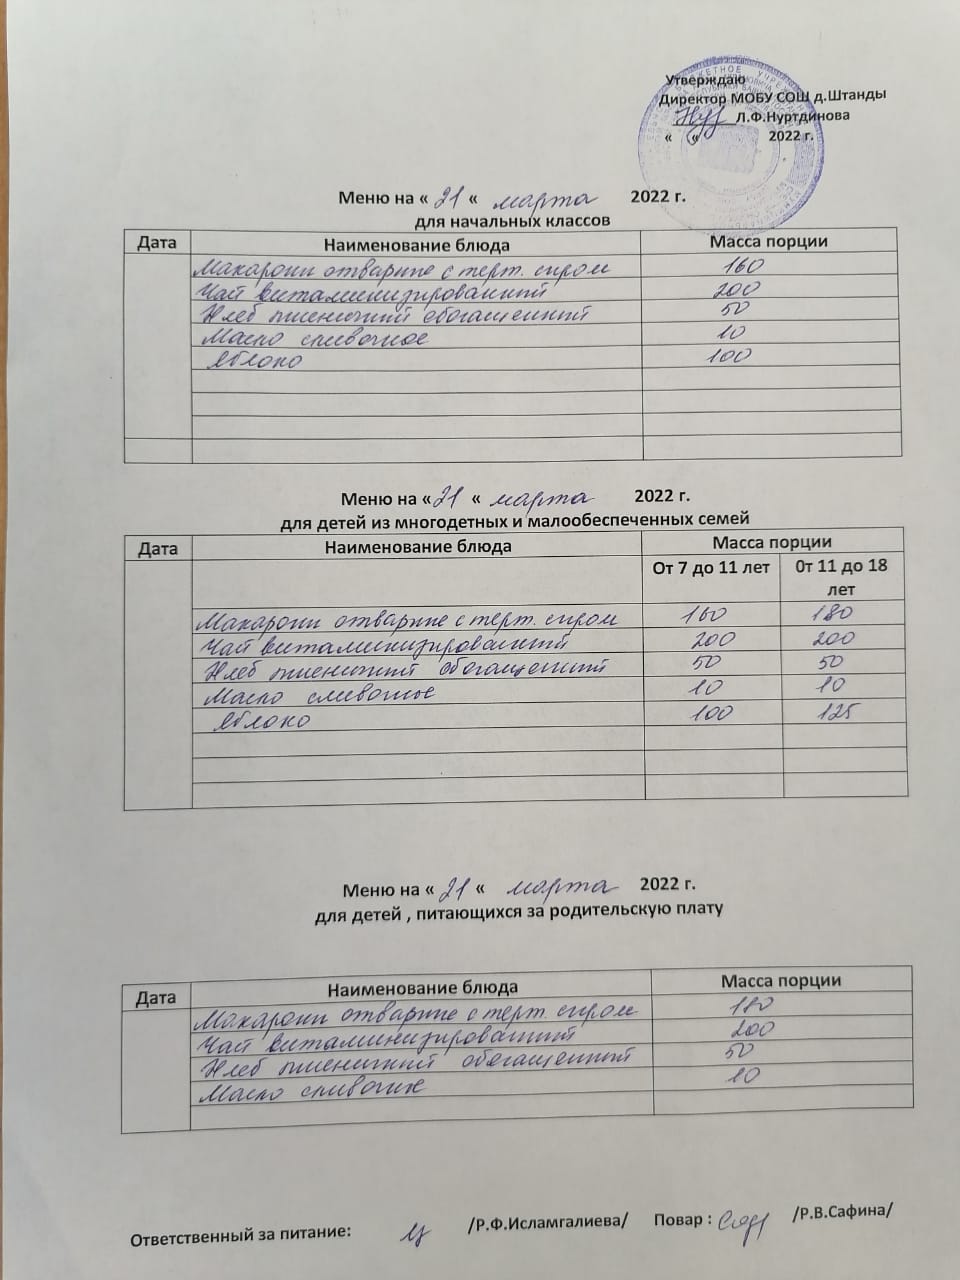 Утверждаю
Директор МОБУ СОШ д.Штанды
Л.Ф.Нуртдинова
« « 2022 г.
Меню на « 21 « марта 2022 г.
для начальных классов
Дата Наименование блюда Масса порции
Макарони отварние с терт. сиром 160
Чай витаминизированний 200
Хлеб пшеничний обогащенний 50
Масло сливочное 10
Яблоко 100
Меню на « 21 « марта 2022 г.
для детей из многодетных и малообеспеченных семей
Дата Наименование блюда Масса порции
От 7 до 11 лет 0т 11 до 18 лет
Макарони отварние с терт. сиром 160 180
Чай витаминизированний 200 200
Хлеб пшеничний обогащенний 50 50
Масло сливочное 10 10
Яблоко 100 125
Меню на « 21 « марта 2022 г.
для детей , питающихся за родительскую плату
Дата Наименование блюда Масса порции
Макарони отварние с терт. сиром 180
Чай витаминизированний 200
Хлеб пшеничний обогащенний 50
Масло сливочное 10
Ответственный за питание: /Р.Ф.Исламгалиева/ Повар : /Р.В.Сафина/